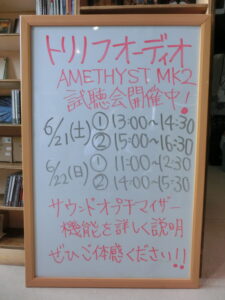 トリノフオーディオ
AMETHYST MK2
試聴会開催中!
6/21(土) ① 13:00~14:30
② 15:00~16:30
6/22(日) ① 11:00~12:30
② 14:00~15:30
サウンドオプチマイザー
機能を詳しく説明
ぜひご体感ください!!